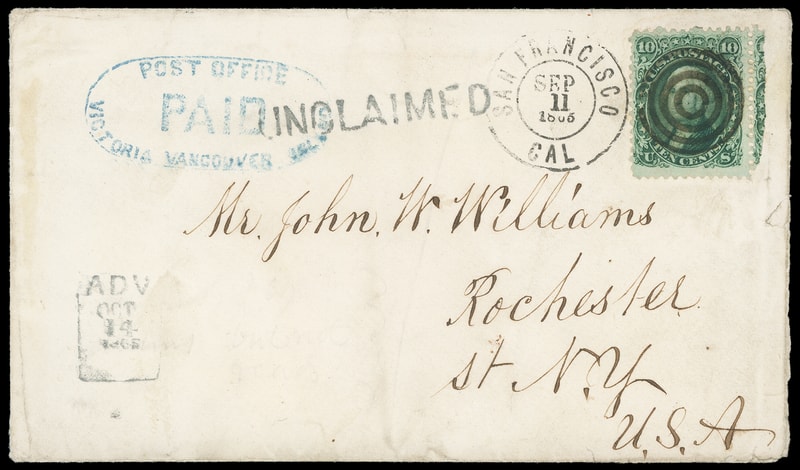 POST OFFICE
PAID
VICTORIA VANCOUVER
UNCLAIMED
SAN FRANCISCO
SEP
11
CAL
10 10
U.S. POSTAGE
TEN CENTS
U S
Mr. John. W. Williams
Rochester
St N.Y
U.S.A
ADV
OCT
14
1865